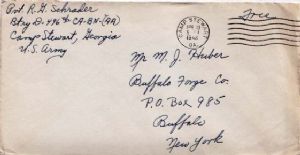 Pvt. R. G. Schrader
Btry D-496th CA-BN-(AA)
Camp Stewart, Georgia
U.S. Army
CAMP STEWART
GA.
Free
Mr. M. J. Huber
Buffalo Forge Co.
P.O. Box 985
Buffalo
New York